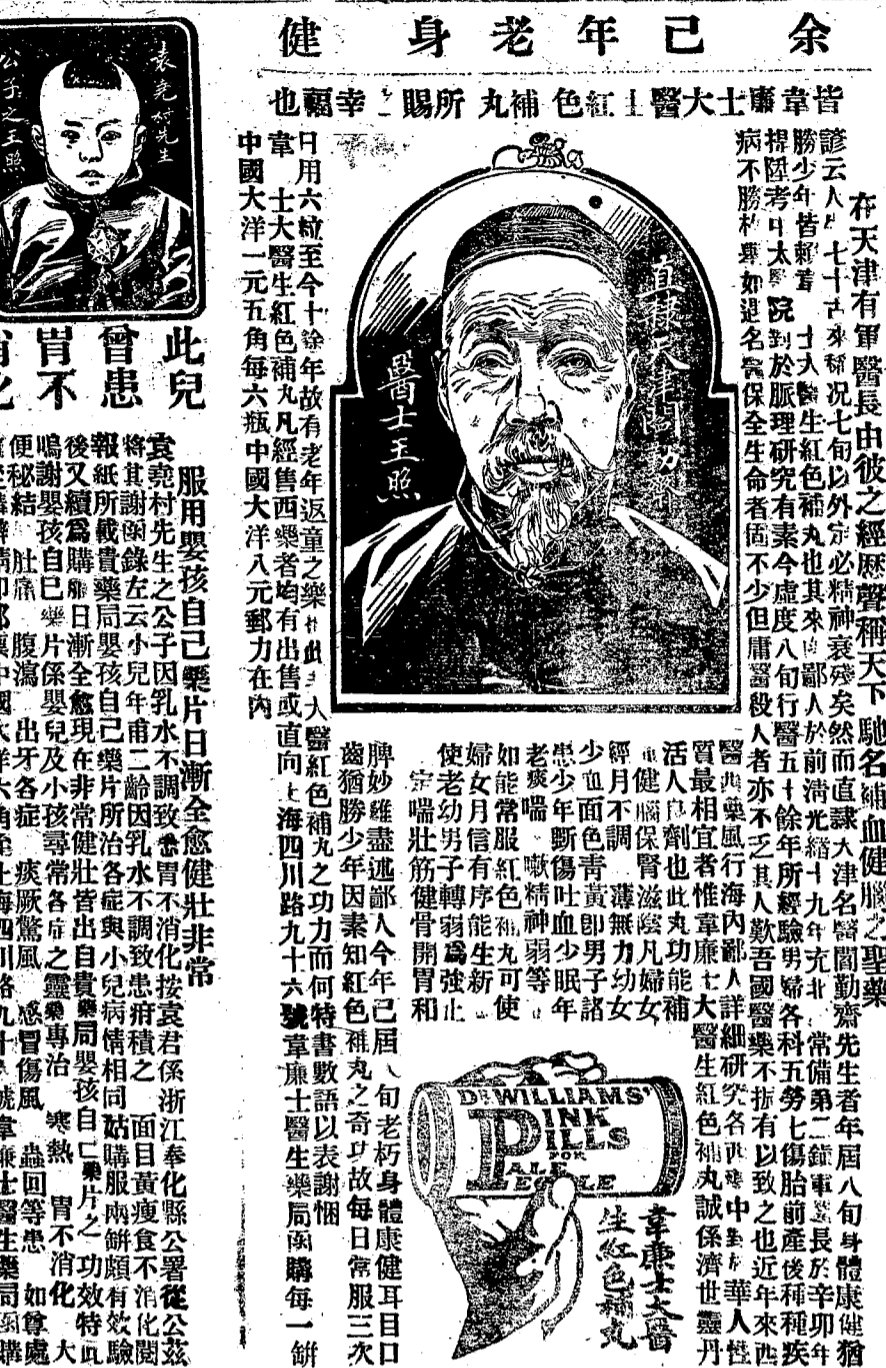 余已年老身健
皆韋廉士大醫士紅色補丸所賜之幸福也
在天津有軍醫長由彼之經歷聲稱天下馳名補血健腦之聖藥
諺云人生七十古來稀况七旬以外定必精神衰殘矣然而直隸天津名醫閻勤齋先生者年屆八旬身體康健猶
勝少年皆賴韋士大醫生紅色補丸也其來函鄙人於前淸光緒十九年充北常備第二鎭軍醫長於辛卯年
提陞考中太醫院對於脈理研究有素今虛度八旬行醫五十餘年所經驗男婦各科五勞七傷胎前產後種種疾
病不勝枚舉如遇名醫保全生命者固不少但庸醫殺人者亦不乏其人歎吾國醫藥不振有以致之也近年來西
醫西藥風行海內鄙人詳細研究各西藥中對於華人性
質最相宜者惟韋廉士大醫生紅色補丸誠係濟世靈丹
活人良劑也此丸功能補
健腦保腎滋陰凡婦女
經月不調薄無力幼女
少血面色靑黃卽男子諸
患少年斲傷吐血少眠年
老痰喘嗽精神弱等
如能常服紅色補丸可使
婦女月信有序能生新
使老幼男子轉弱爲強止
定喘壯筋健骨開胃和
脾妙難盡述鄙人今年已屆八旬老朽身體康健耳目口
齒猶勝少年因素知紅色補丸之奇功故每日常服三次
日用六粒至今十餘年故有老年返童之樂此士大醫紅色補丸之功力而何特書數語以表謝悃
韋士大醫生紅色補丸凡經售西藥者均有出售或直向上海四川路九十六號韋廉士醫生藥局函購每一缾
中國大洋一元五角每六瓶中國大洋八元郵力在內
直隸天津閻勤齋
醫士玉照
DR WILLIAMS'
PINK
PILLS
FOR
PALE
PEOPLE
韋廉士大醫
生紅色補丸
袁堯村先生
公子之玉照
此兒
曾患
胃不
消化
服用嬰孩自己藥片日漸全愈健壯非常
袁堯村先生之公子因乳水不調致患胃不消化按袁君係浙江奉化縣公署從公茲
將其謝函錄左云小兒年甫二齡因乳水不調致患疳積之面目黃瘦食不消化閱
報紙所載貴藥局嬰孩自己藥片所治各症與小兒病情相同姑購服兩缾頗有效驗
後又續爲購服日漸全愈現在非常健壯皆出自貴藥局嬰孩自己藥片之功效特此
鳴謝嬰孩自己藥片係嬰兒及小孩尋常各症之靈藥專治寒熱胃不消化大
便秘結肚痛腹瀉出牙各症痰厥驚風感冒傷風蟲回等患如尊處
中國大洋六角上海四川路九十號韋廉士醫生藥局函購